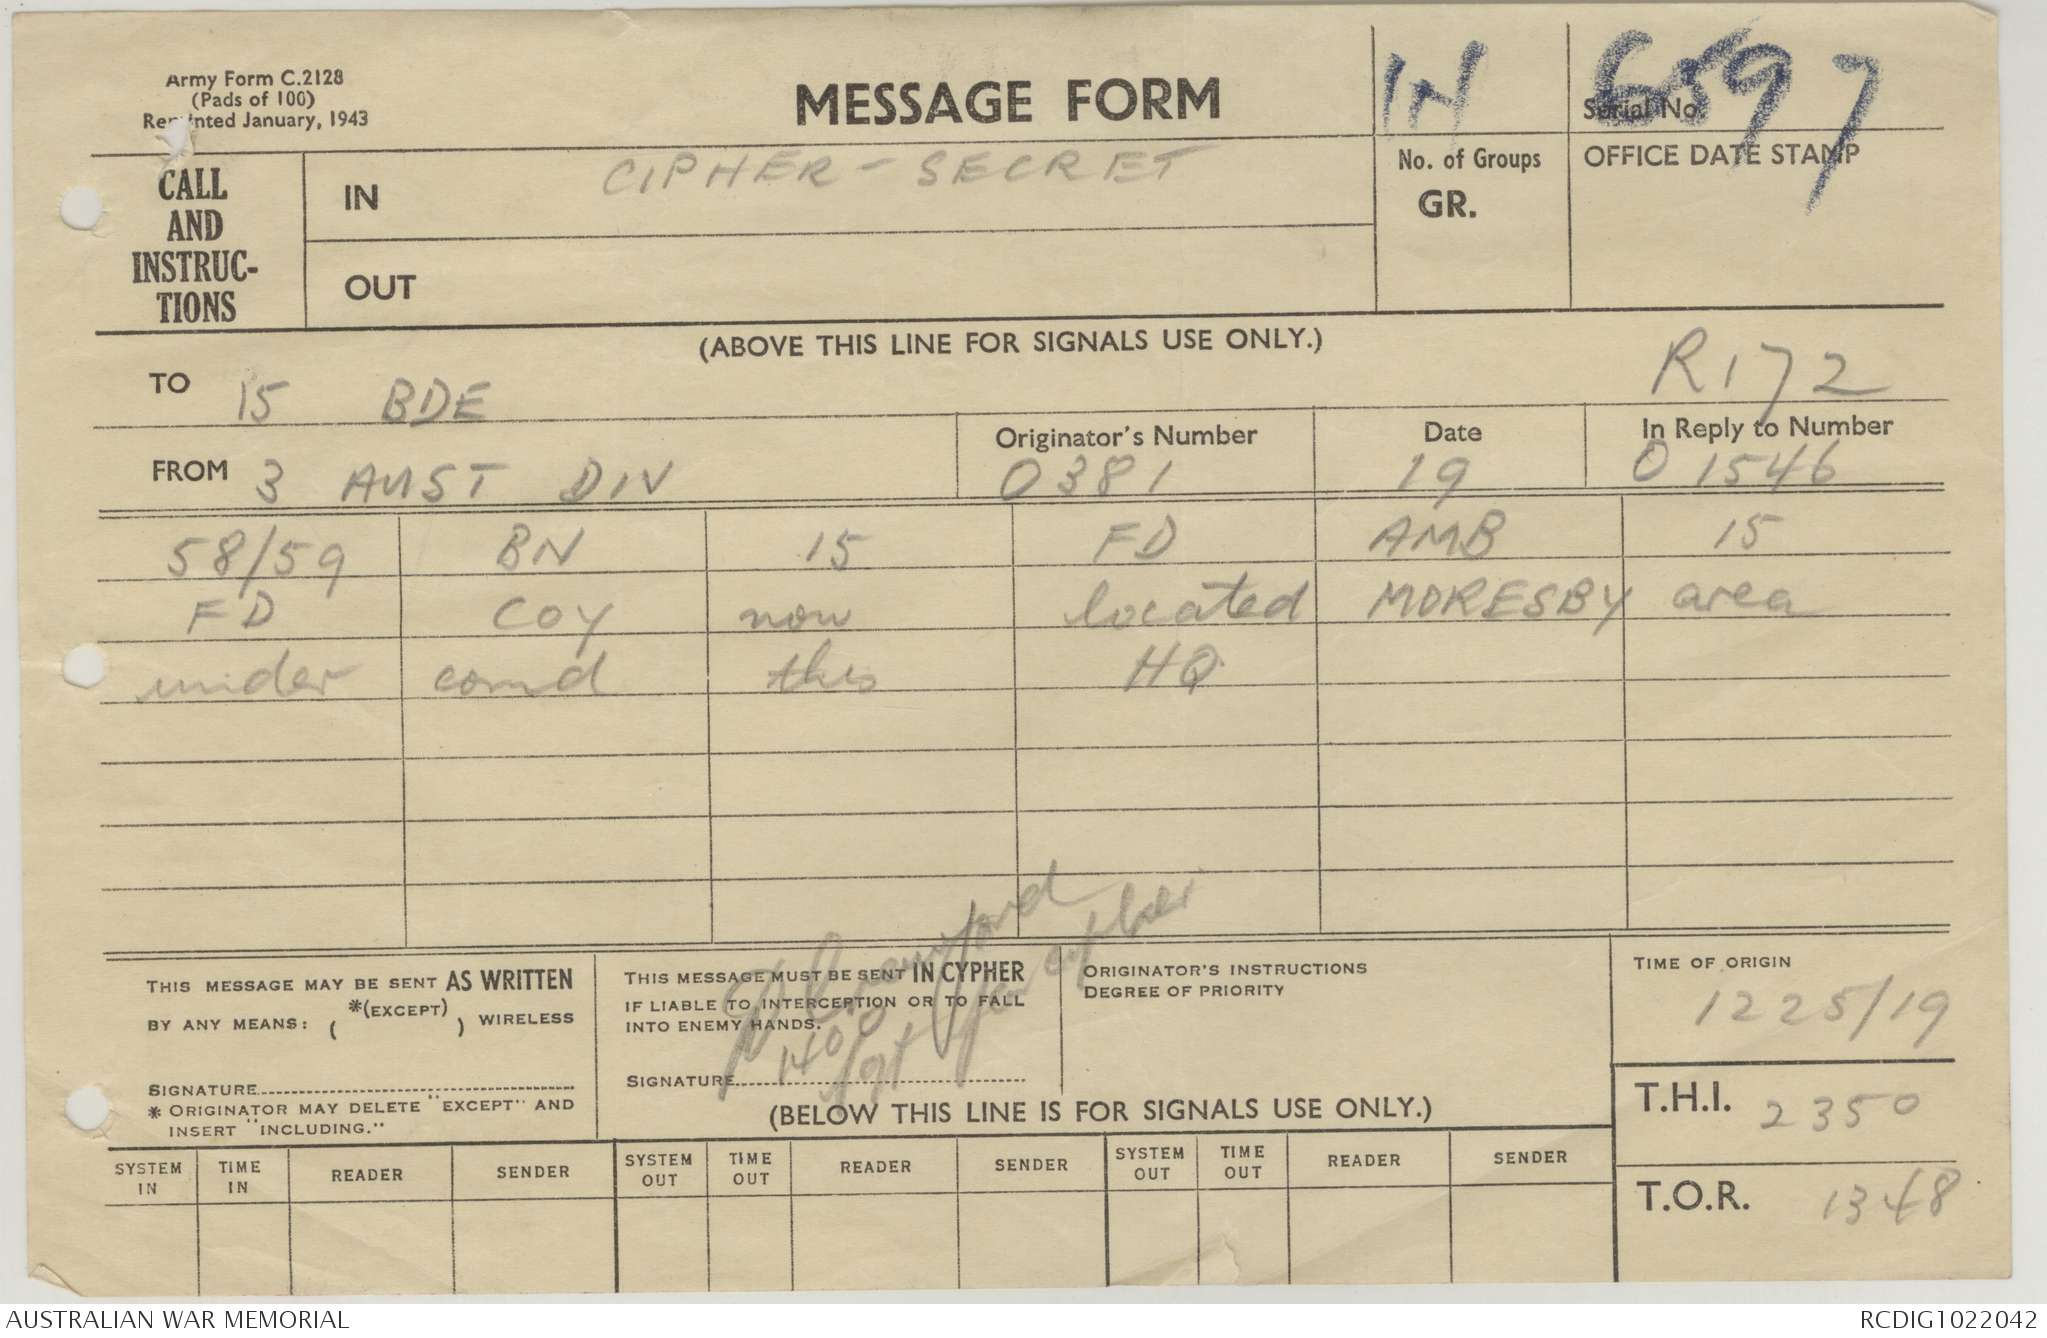 Army Form C.2128
(Pads of 100)
Reprinted January, 1943
MESSAGE FORM
IN 6597
Serial No.
CALL
AND
INSTRUC-
TIONS
IN CIPHER - SECRET
OUT
No. of Groups
GR.
OFFICE DATE STAMP
(ABOVE THIS LINE FOR SIGNALS USE ONLY.)
R172
TO 15 BDE
FROM 3 AUST DIV
Originator's Number
0381
Date
19
In Reply to Number
O 1546
58/59 BN 15 FD AMB 15
FD COY now located MORESBY area
under comd this HQ
THIS MESSAGE MAY BE SENT AS WRITTEN
BY ANY MEANS: ( *(EXCEPT) ) WIRELESS
SIGNATURE
* ORIGINATOR MAY DELETE "EXCEPT" AND
INSERT "INCLUDING."
THIS MESSAGE MUST BE SENT IN CYPHER
IF LIABLE TO INTERCEPTION OR TO FALL
INTO ENEMY HANDS.
SIGNATURE
Crawford
Sgt for cypher
ORIGINATOR'S INSTRUCTIONS
DEGREE OF PRIORITY
TIME OF ORIGIN
1225/19
T.H.I. 2350
T.O.R. 1348
(BELOW THIS LINE IS FOR SIGNALS USE ONLY.)
SYSTEM IN TIME IN READER SENDER SYSTEM OUT TIME OUT READER SENDER SYSTEM OUT TIME OUT READER SENDER
AUSTRALIAN WAR MEMORIAL
RCDIG1022042